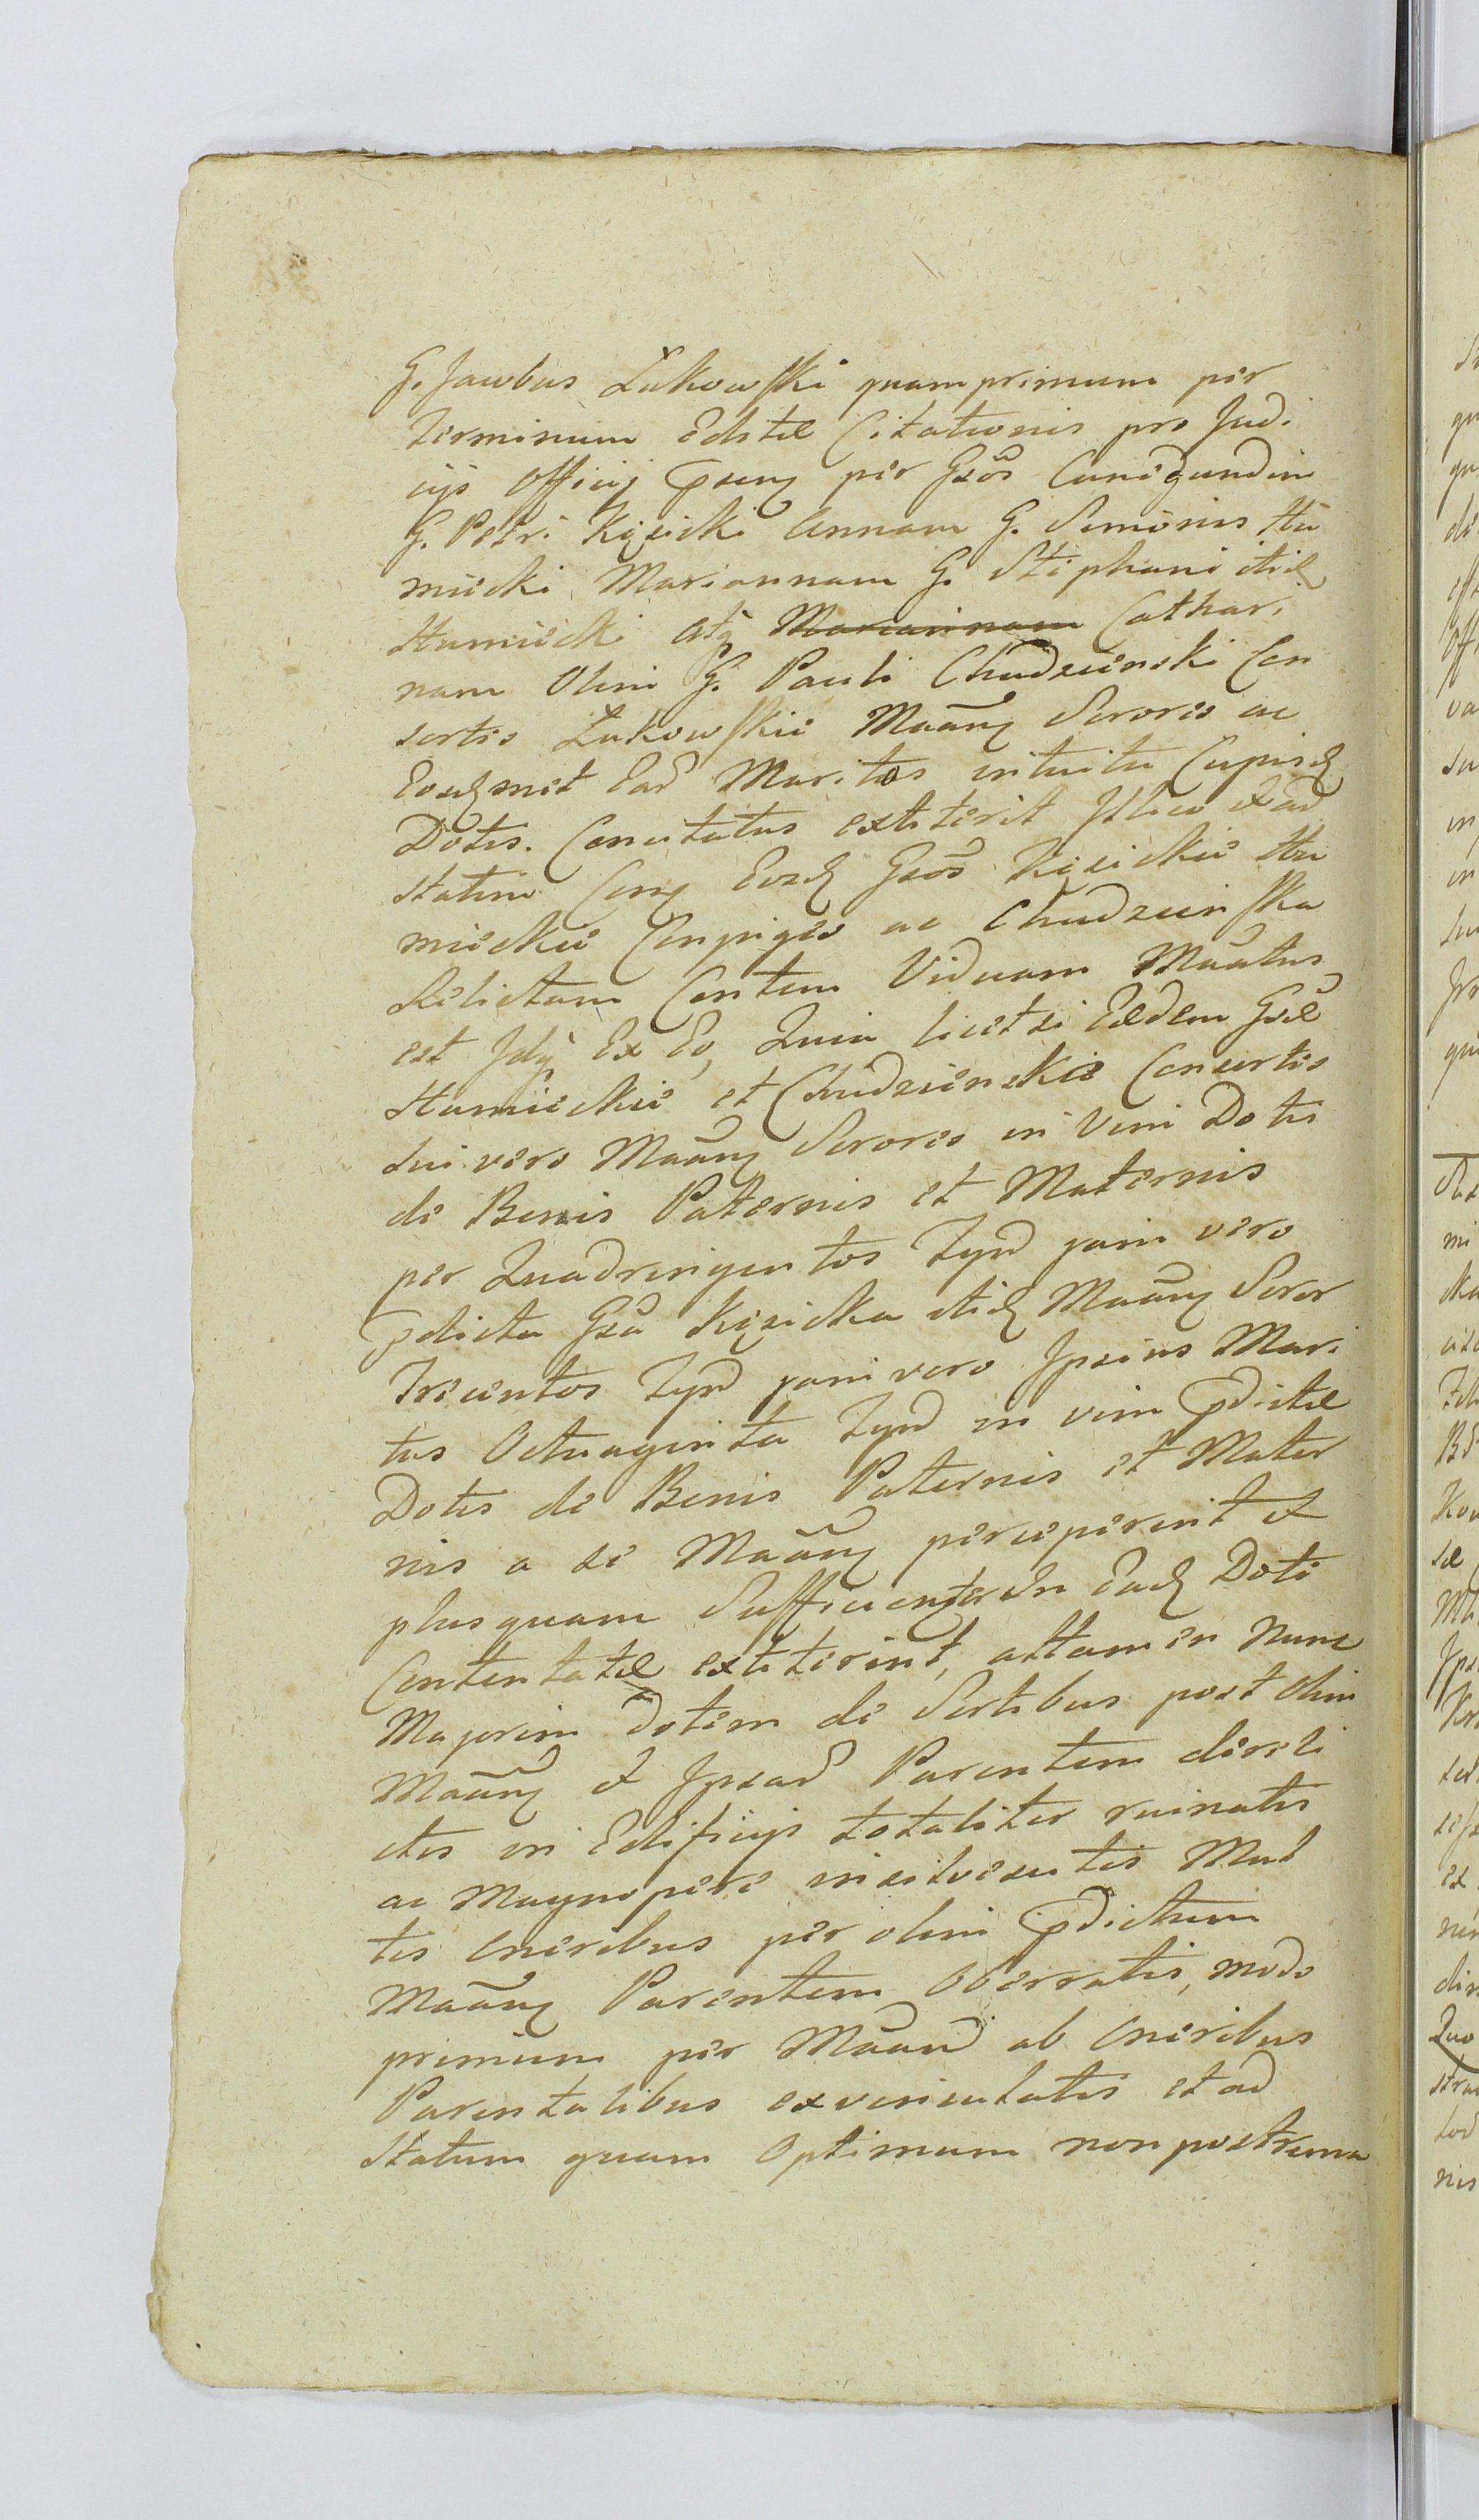 G. Jacobus Żukowski quamprimum per
Terminum Editæ Citationis pro Judi
ciis Officii pseng per Gsos Cunegundim
G. Petri Kięsicki Annam G. Simonis Stu
miecki Mariannam G. Stephani itid
Stumiecki atq Mariannam Cathari
nam Olim G. Pauli Chudzieński Con
sortis Żukowskie Maāng Sorores ac
Eosdmet Ear Maritos intuitu Cupisd
Dotis. Concitatus extiterit Illico Ead
statim Cong Eosd Gsos Kięsickie Stu
mieckie Conjuges ac Chudzieńska
Relictam Contem Viduam Maātus
est Idq Ex Eo, Quia licet si Eædem Gsæ
Stumieckie et Chudzieńskie Consortis
Sui vero Maāng Sorores in Vim Dotis
de Bonis Paternis et Maternis
per Quadringentos Tynf jam vero
pdicta Gsa Kięsicka itid Maāng Soror
Trecentos Tynf jam vero Ipsius Mari
tus Octuaginta Tynf in vim pdictæ
Dotis de Bonis Paternis et Mater
nis a se Maāng perceperint et
plusquam Sufficienter In Ead Dote
Contentatæ extiterint, attamen nunc
Majorem Dotem de Sortibus post olim
Maāng et Ipsar Parentem direli
ctis in Edificiis totaliter ruinatis
ac Magnopere insilvescitis Mul
tis Oneribus per olim pdictum
Maāng Parentem Oberratis, modo
primum per Maānd ab Oneribus
Parentalibus exvinculatis et ad
Statum quam Optimum non postrema